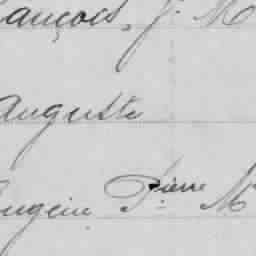 ançois, J. M
Auguste
Eugène Pierre M